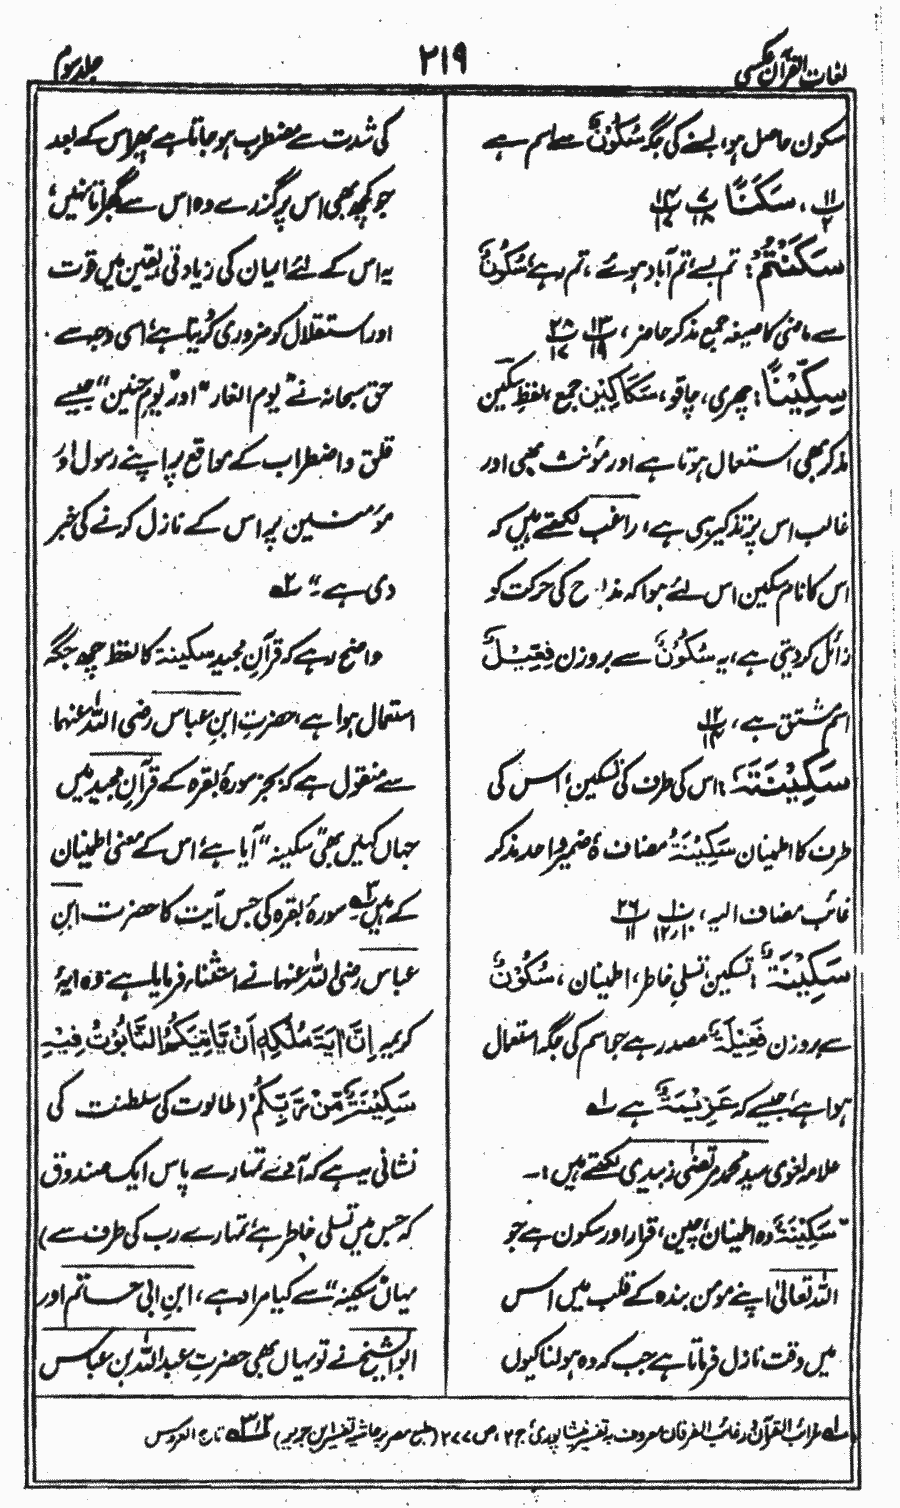 لغات القرآن عکسی
۲۱۹
جلد سوم
سکون حاصل ہو، بسنے کی جگہ سُکُونٌ سے اسم ہے
پ ۱۱ ۲، سَکَنًا پ ۷ ۱۸ پ ۱۴ ۱۷
سَکَنْتُمْ: تم بسے، تم آباد ہوئے، تم رہے، سُکُونٌ
سے ماضی کا صیغہ جمع مذکر حاضر، پ ۱۳ ۱۹ پ ۲۸ ۱۷
سِکِّیْنًا: چھری، چاقو، سَکَاکِیْنُ جمع، لفظ سکین
مذکر بھی استعمال ہوتا ہے اور مؤنث بھی اور
غالب اس پر تذکیر ہی ہے، راغب لکھتے ہیں کہ
اس کا نام سکین اس لئے ہوا کہ مذبوح کی حرکت کو
زائل کر دیتی ہے، یہ سُکُوْنٌ سے بروزن فِعِّیْلٌ
اسم مشتق ہے، پ ۱۲ ۱۴
سَکِیْنَتَہٗ: اس کی طرف کی تسکین، اس کی
طرف کا اطمینان سَکِیْنَۃُ مضاف ہٗ ضمیر واحد مذکر
غائب مضاف الیہ، پ ۱۰ ۱۰،۱۲ پ ۲۶ ۱۱
سَکِیْنَۃٌ: تسکین، تسلی خاطر، اطمینان، سُکُوْنٌ
سے بروزن فَعِیْلَۃٌ مصدر ہے جو اسم کی جگہ استعمال
ہوا ہے، جیسے کہ عَزِیْمَۃٌ ہے ؎۱
علامہ لغوی سید محمد مرتضیٰ زبیدی لکھتے ہیں:۔
”سَکِیْنَۃٌ وہ اطمینان، چین، قرار اور سکون ہے جو
اللہ تعالیٰ اپنے مومن بندہ کے قلب میں اس
میں وقت نازل فرماتا ہے جب کہ وہ ہولناکیوں
کی شدت سے مضطرب ہو جاتا ہے پھر اس کے بعد
جو کچھ بھی اس پر گزرے وہ اس سے گھبراتا نہیں،
یہ اس کے لئے ایمان کی زیادتی یقین میں قوت
اور استقلال کو ضروری کر دیتا ہے، اسی وجہ سے
حق سبحانہ نے ”یوم الغار“ اور ”یوم حنین“ جیسے
قلق و اضطراب کے مواقع پر اپنے رسول اور
مؤمنین پر اس کے نازل کرنے کی خبر
دی ہے۔“ ؎۲
واضح رہے کہ قرآن مجید سکینۃ کا لفظ چھ جگہ
استعمال ہوا ہے، حضرت ابن عباس رضی اللہ عنہما
سے منقول ہے کہ بجز سورۂ بقرہ کے قرآن مجید میں
جہاں کہیں بھی ”سکینہ“ آیا ہے، اس کے معنی اطمینان
کے ہیں ؎۳ سورۂ بقرہ کی جس آیت کا حضرت ابن
عباس رضی اللہ عنہما نے استثناء فرمایا ہے وہ ایۂ
کریمہ اِنَّ اٰیَۃَ مُلْکِہٖ اَنْ یَّاْتِیَکُمُ التَّابُوْتُ فِیْہِ
سَکِیْنَۃٌ مِّنْ رَّبِّکُمْ (طالوت کی سلطنت کی
نشانی یہ ہے کہ آئے تمہارے پاس ایک صندوق
کہ جس میں تسلی خاطر ہے تمہارے رب کی طرف سے)
یہاں ”سکینہ“ سے کیا مراد ہے، ابن ابی حاتم اور
ابو الشیخ نے تو یہاں بھی حضرت عبداللہ بن عباس
؎۱ غرائب القرآن ورغائب الفرقان معروف بہ تفسیر نیشاپوری، ج ۲، ص ۲۷۷ (طبع مصر بر حاشیہ تفسیر ابن جریر) ؎۲،۳ تاج العروس